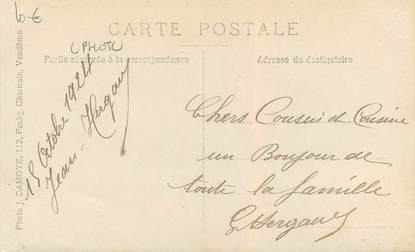 10 €
CARTE POSTALE
(PHOTO)
Partie réservée à la correspondance
Adresse du destinataire
Photo J. DAMOYE, 112, Faubg. Chartrain, Vendôme.
15 Octobre 1924
Jean
Chers Cousin et Cousine
un Bonjour de
toute la famille